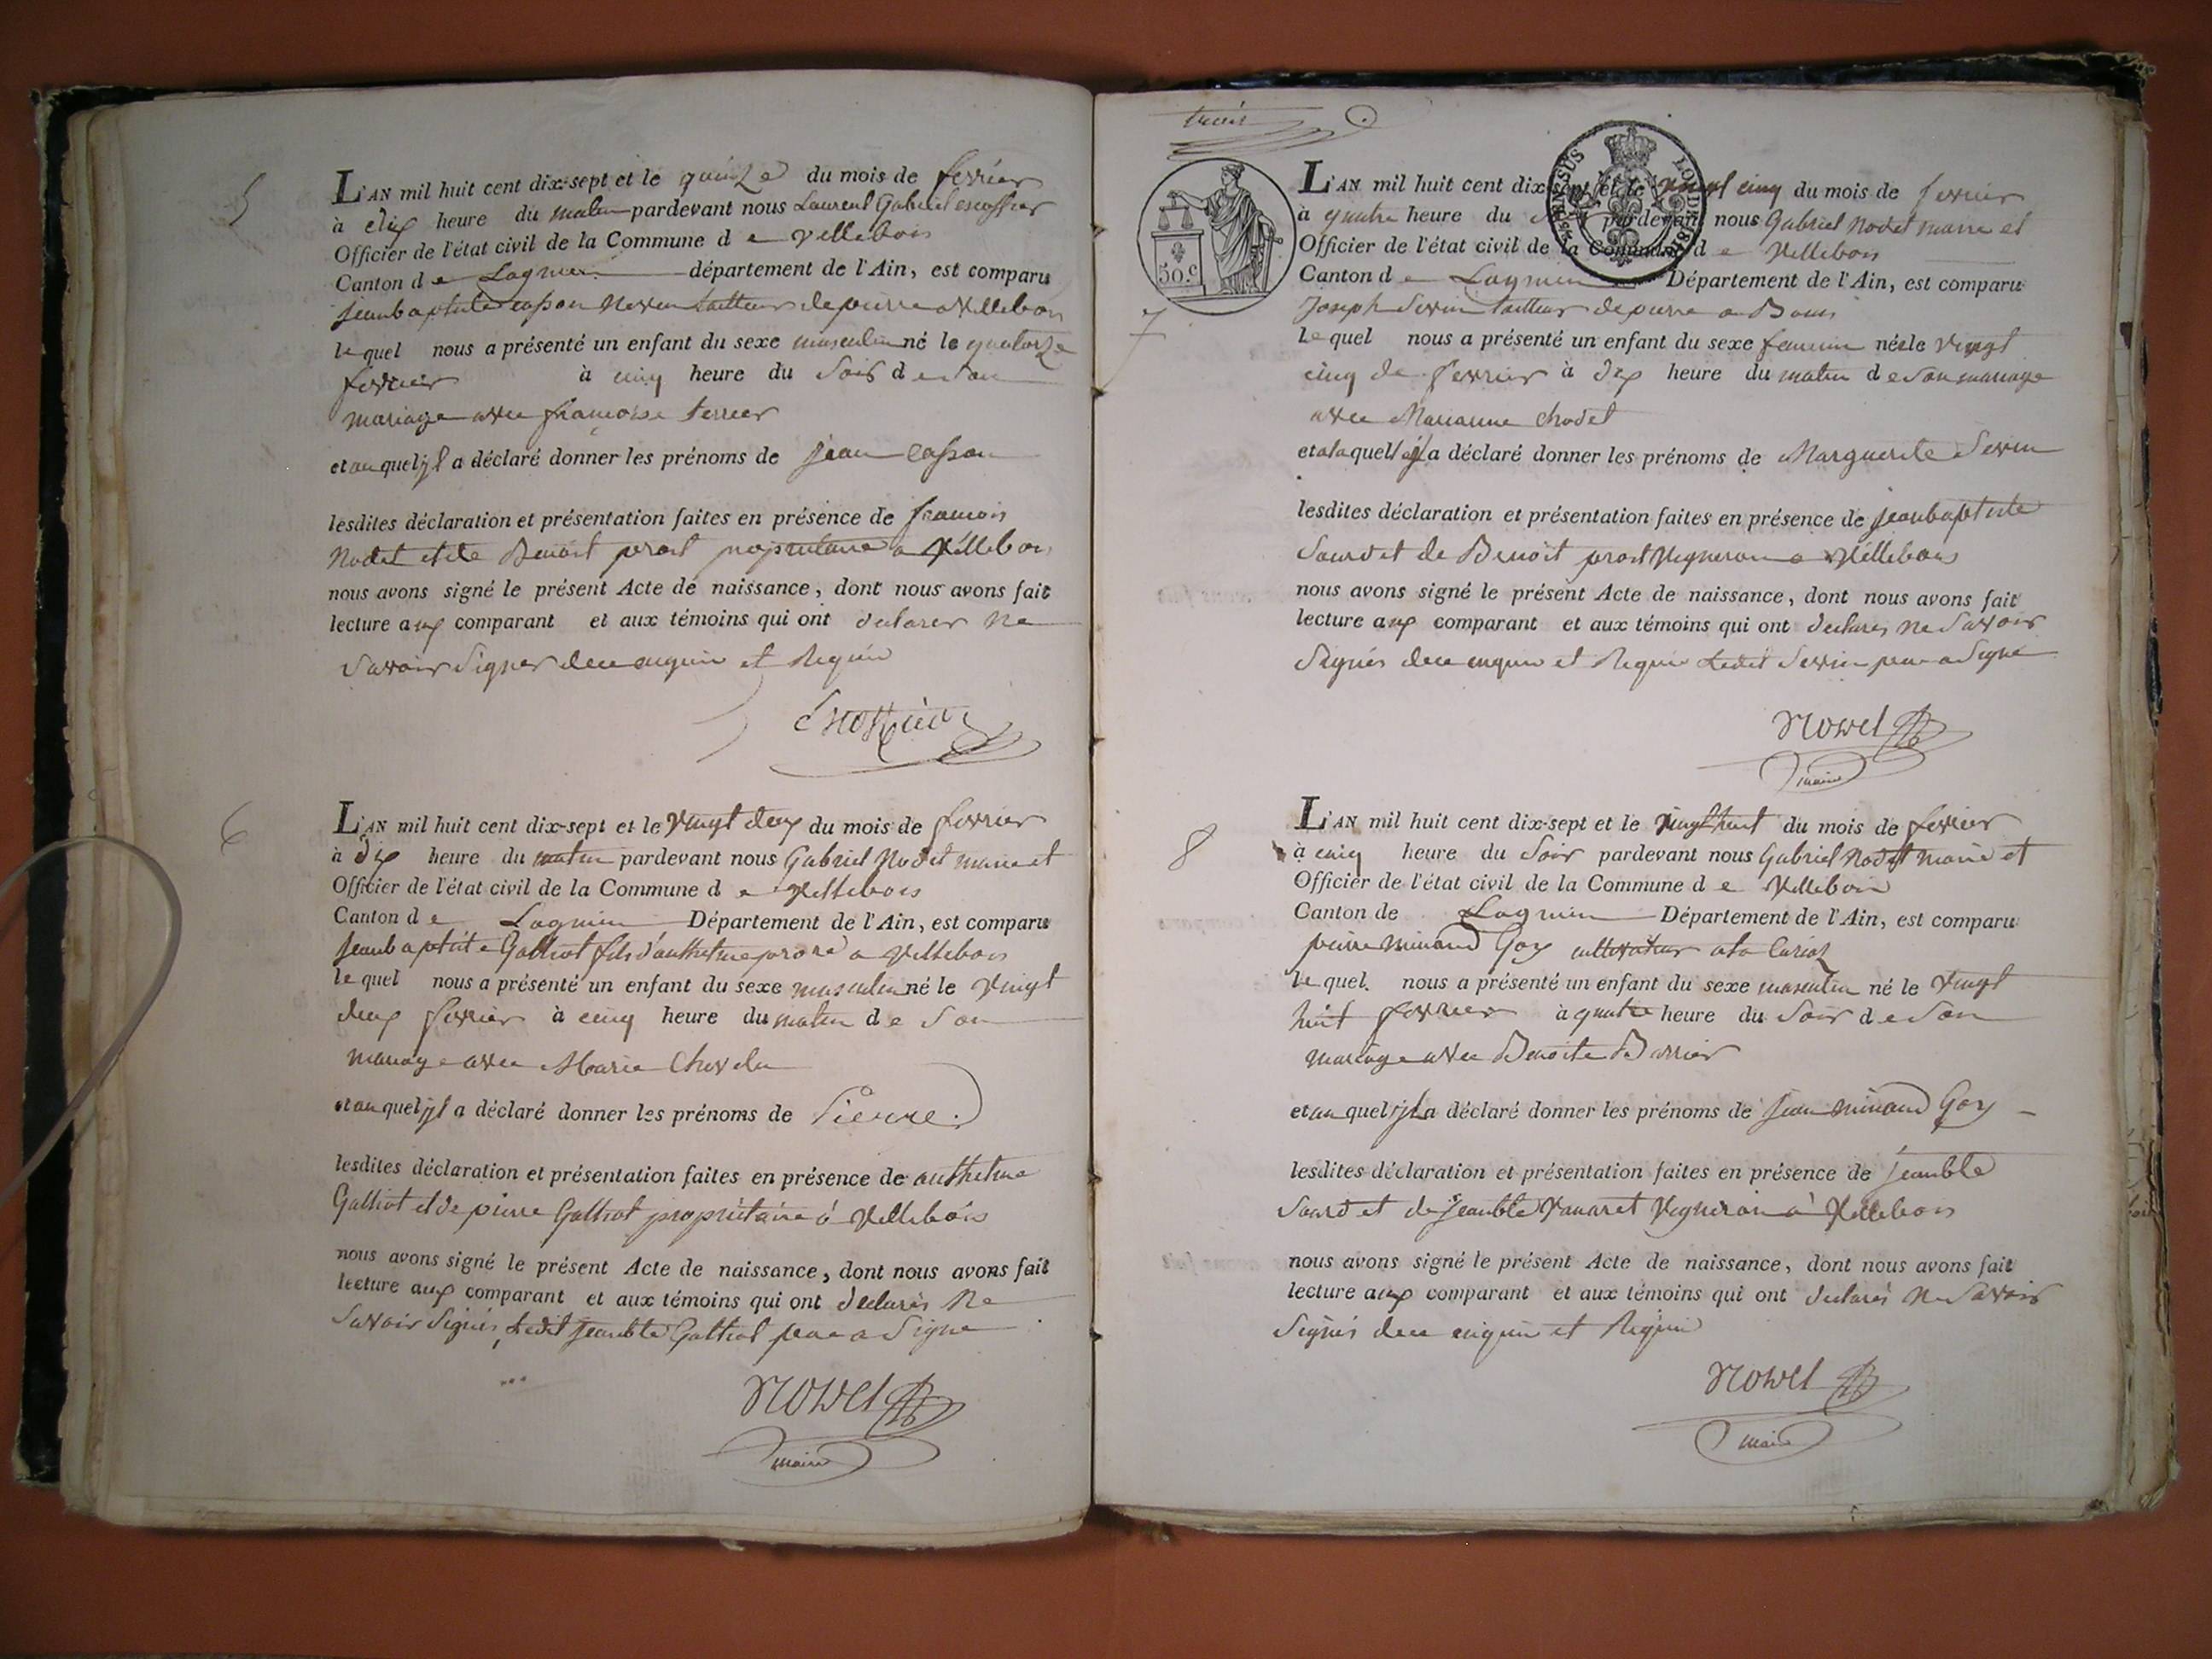 5
L'AN mil huit cent dix-sept et le quinze du mois de fevrier
à dix heure du matin pardevant nous Laurent Gabriel escoffier
Officier de l'état civil de la Commune d e villebois
Canton d e Lagnieu département de l'Ain, est comparu
jeanbaptiste casson neveu tailleur de pierre a villebois
le quel nous a présenté un enfant du sexe masculin né le quatorze
fevrier à cinq heure du soir d e son
mariage avec françoise terrier
et au quel il a déclaré donner les prénoms de jean casson
lesdites déclaration et présentation faites en présence de francois
Nodet et de Benoit prost propriétaire a villebois
nous avons signé le présent Acte de naissance, dont nous avons fait
lecture aux comparant et aux témoins qui ont declarer ne
savoir signer de ce enquis et requis
Escoffier
6
L'AN mil huit cent dix-sept et le vingt deux du mois de fevrier
à dix heure du matin pardevant nous Gabriel Nodet maire et
Officier de l'état civil de la Commune d e villebois
Canton d e Lagnieu Département de l'Ain, est comparu
jeanbaptiste Galliot fils d'anthelme a villebois
le quel nous a présenté un enfant du sexe masculin né le vingt
deux fevrier à cinq heure du matin d e son
mariage avec Marie Chevelu
et au quel il a déclaré donner les prénoms de Pierre
lesdites déclaration et présentation faites en présence de anthelme
Galliot et de pierre Galliot propriétaire à villebois
nous avons signé le présent Acte de naissance, dont nous avons fait
lecture aux comparant et aux témoins qui ont declarés ne
savoir signés ledit jeanbte Galliot pere a signe
Nodet
maire
trois
30.c
LOI DE 1816
7
L'AN mil huit cent dix sept et le vingt cinq du mois de fevrier
à quatre heure du soir pardevant nous Gabriel Nodet maire et
Officier de l'état civil de la Commune d e villebois
Canton d e Lagnieu Département de l'Ain, est comparu
Joseph Serrin tailleur de pierre a Bouis
le quel nous a présenté un enfant du sexe feminin née le vingt
cinq de fevrier à dix heure du matin d e son mariage
avec Marianne Chodet
et a la quelle il a déclaré donner les prénoms de Marguerite Serrin
lesdites déclaration et présentation faites en présence de jeanbaptiste
Sourd et de Benoit prost vigneron a villebois
nous avons signé le présent Acte de naissance, dont nous avons fait
lecture aux comparant et aux témoins qui ont declarés ne savoir
signés de ce enquis et requis ledit Serrin pere a signe
Nodet
maire
8
L'AN mil huit cent dix-sept et le vingt huit du mois de fevrier
à cinq heure du soir pardevant nous Gabriel Nodet maire et
Officier de l'état civil de la Commune d e villebois
Canton de Lagnieu Département de l'Ain, est comparu
pierre minand Goy cultivateur a la
le quel nous a présenté un enfant du sexe masculin né le vingt
huit fevrier à quatre heure du soir d e son
mariage avec Benoite
et au quel il a déclaré donner les prénoms de jean minand Goy
lesdites déclaration et présentation faites en présence de jeanbte
Sourd et de jeanbte vanaret vigneron à villebois
nous avons signé le présent Acte de naissance, dont nous avons fait
lecture aux comparant et aux témoins qui ont declarés ne savoir
signés de ce enquis et requis
Nodet
maire